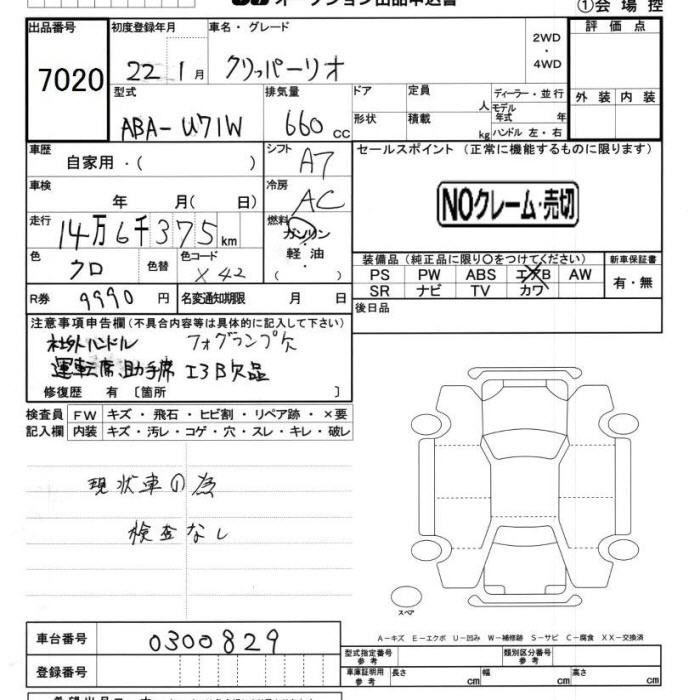 オークション出品申込書
①会場控
出品番号 初度登録年月 車名・グレード 評価点
7020 22年1月 クリッパーリオ 2WD・4WD
型式 排気量 ドア 定員 人 ディーラー・並行 外装 内装
ABA-U71W 660cc 形状 積載 kg モデル年式 年 ハンドル 左・右
車歴 シフト セールスポイント (正常に機能するものに限ります)
自家用・( ) A7
車検 冷房 NOクレーム・売切
年 月( 日) AC
走行 燃料
14万6千375km ガソリン・軽油・( )
色 色替 色コード 装備品(純正品に限り〇をつけてください) 新車保証書
クロ X42 PS PW ABS エアB AW 有・無
SR ナビ TV カワ
R券 9990円 名変通知期限 月 日 後日品
注意事項申告欄(不具合内容等は具体的に記入して下さい)
社外ハンドル フォグランプ欠
運転席、助手席 エアB欠品
修復歴 有〔箇所 〕
検査員 FW キズ・飛石・ヒビ割・リペア跡・×要
記入欄 内装 キズ・汚レ・コゲ・穴・スレ・キレ・破レ
現状車の為
検査なし
スペア
A-キズ E-エクボ U-凹み W-補修跡 S-サビ C-腐食 XX-交換済
車台番号 0300829 型式指定番号 参考 類別区分番号 参考
登録番号 車庫証明用 参考 長さ cm 幅 cm 高さ cm